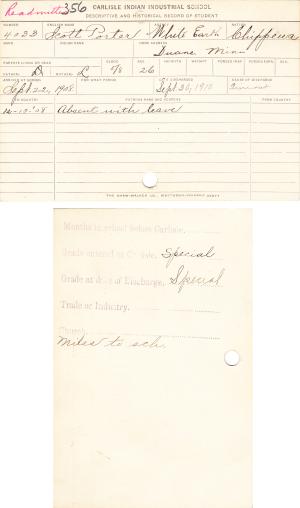 Readmitted 356
CARLISLE INDIAN INDUSTRIAL SCHOOL
DESCRIPTIVE AND HISTORICAL RECORD OF STUDENT
NUMBER ENGLISH NAME AGENCY NATION
4033 Scott Porter White Earth Chippewa
BAND INDIAN NAME HOME ADDRESS
Duane Minn
PARENTS LIVING OR DEAD BLOOD AGE HEIGHT WEIGHT FORCED INSP. FORCED EXPR. SEX.
FATHER D MOTHER L 5/8 26
ARRIVED AT SCHOOL FOR WHAT PERIOD DATE DISCHARGED CAUSE OF DISCHARGE
Sept 22, 1908 Sept 30, 1910 Time out
TO COUNTRY PATRONS NAME AND ADDRESS FROM COUNTRY
12-10-'08 Absent with leave
Months in school before Carlisle,
Grade entered at Carlisle, Special
Grade at date of Discharge, Special
Trade or Industry,
Church,
Miles to sch.